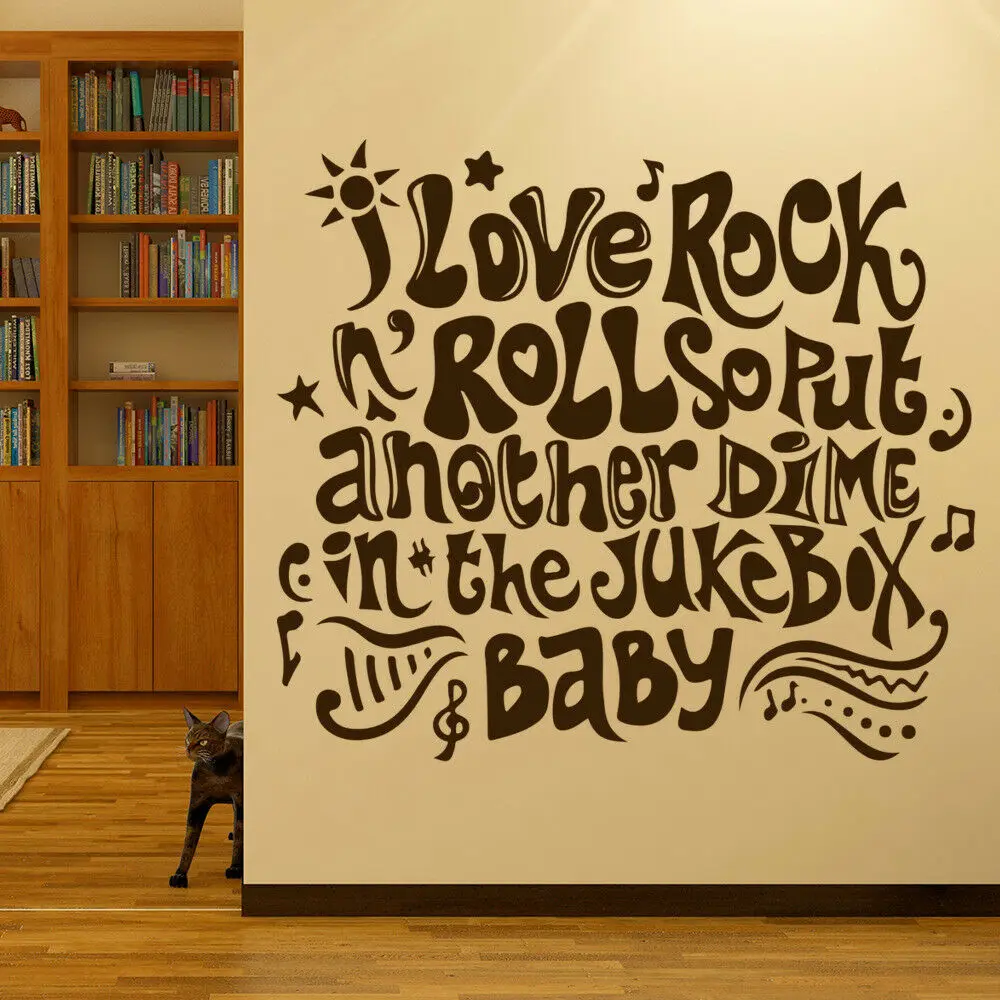 i LOVE ROCK
n' ROLL SO PUT
another DiME
in the JUKeBOX
BaBy